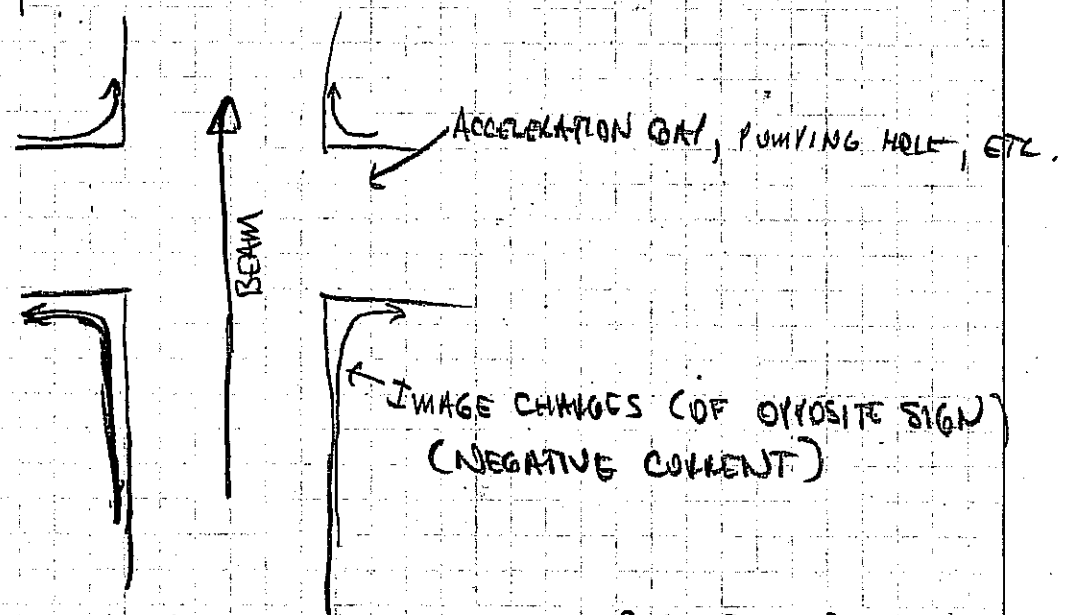 ACCELERATION GAP, PUMPING HOLE, ETC.
BEAM
IMAGE CHARGES (OF OPPOSITE SIGN)
(NEGATIVE CURRENT)